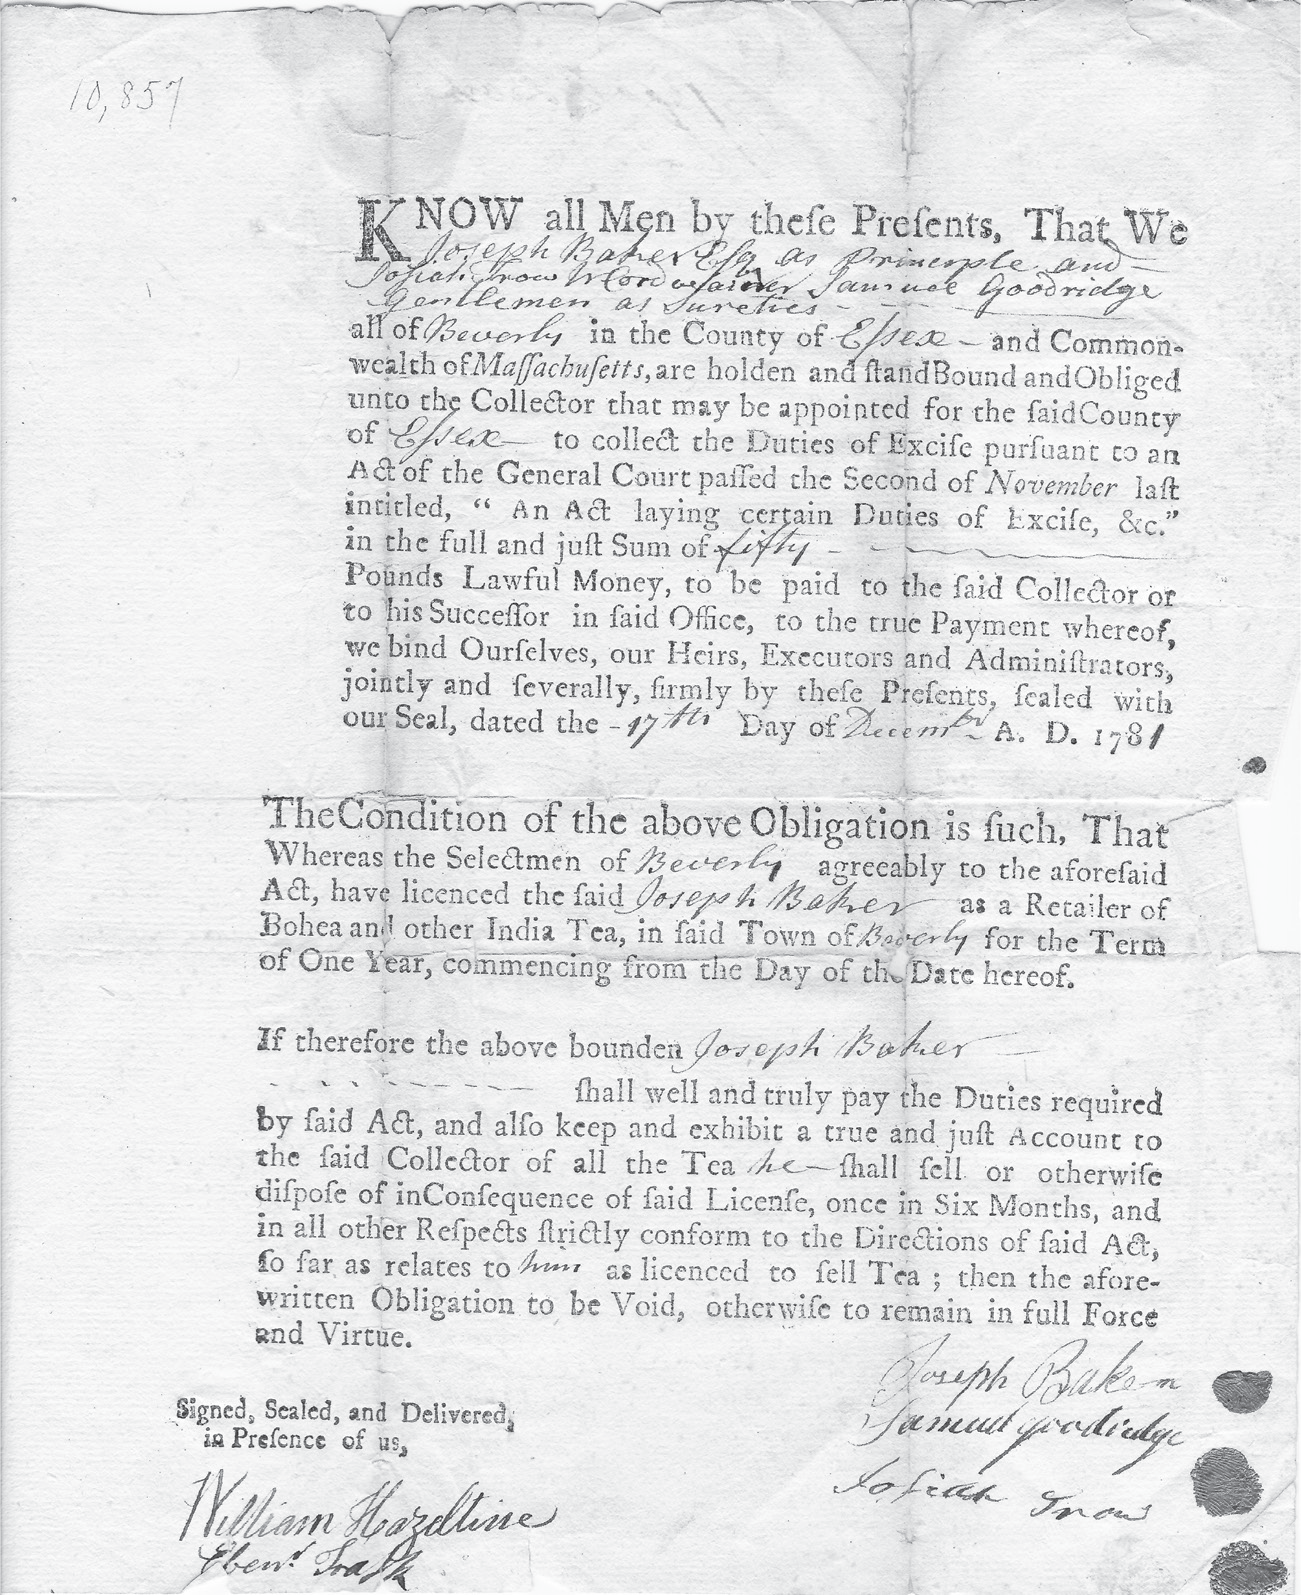 10,857
KNOW all Men by theſe Preſents, That We
Joseph Baker Esq as Principle and
Josiah Trow Cordwainer Samuel Goodridge
Gentlemen as Sureties
all of Beverly in the County of Eſsex – and Common-
wealth of Maſſachuſetts, are holden and ſtand Bound and Obliged
unto the Collector that may be appointed for the ſaid County
of Eſsex to collect the Duties of Exciſe purſuant to an
Act of the General Court paſſed the Second of November laſt
intitled, “ An Act laying certain Duties of Exciſe, &c.”
in the full and juſt Sum of fifty
Pounds Lawful Money, to be paid to the ſaid Collector or
to his Succeſſor in ſaid Office, to the true Payment whereof,
we bind Ourſelves, our Heirs, Executors and Adminiſtrators,
jointly and ſeverally, firmly by theſe Preſents, ſealed with
our Seal, dated the 17th Day of Decembr A. D. 1781
The Condition of the above Obligation is ſuch, That
Whereas the Selectmen of Beverly agreeably to the aforeſaid
Act, have licenced the ſaid Joseph Baker as a Retailer of
Bohea and other India Tea, in ſaid Town of Beverly for the Term
of One Year, commencing from the Day of the Date hereof.
If therefore the above bounden Joseph Baker
ſhall well and truly pay the Duties required
by ſaid Act, and alſo keep and exhibit a true and juſt Account to
the ſaid Collector of all the Tea he – ſhall ſell or otherwiſe
diſpoſe of in Conſequence of ſaid Licenſe, once in Six Months, and
in all other Reſpects ſtrictly conform to the Directions of ſaid Act,
ſo far as relates to him as licenced to ſell Tea ; then the afore-
written Obligation to be Void, otherwiſe to remain in full Force
and Virtue.
Joseph Baker
Samuel goodridge
Josiah Trow
Signed, Sealed, and Delivered,
in Preſence of us,
William Hazeltine
Ebenr Trask